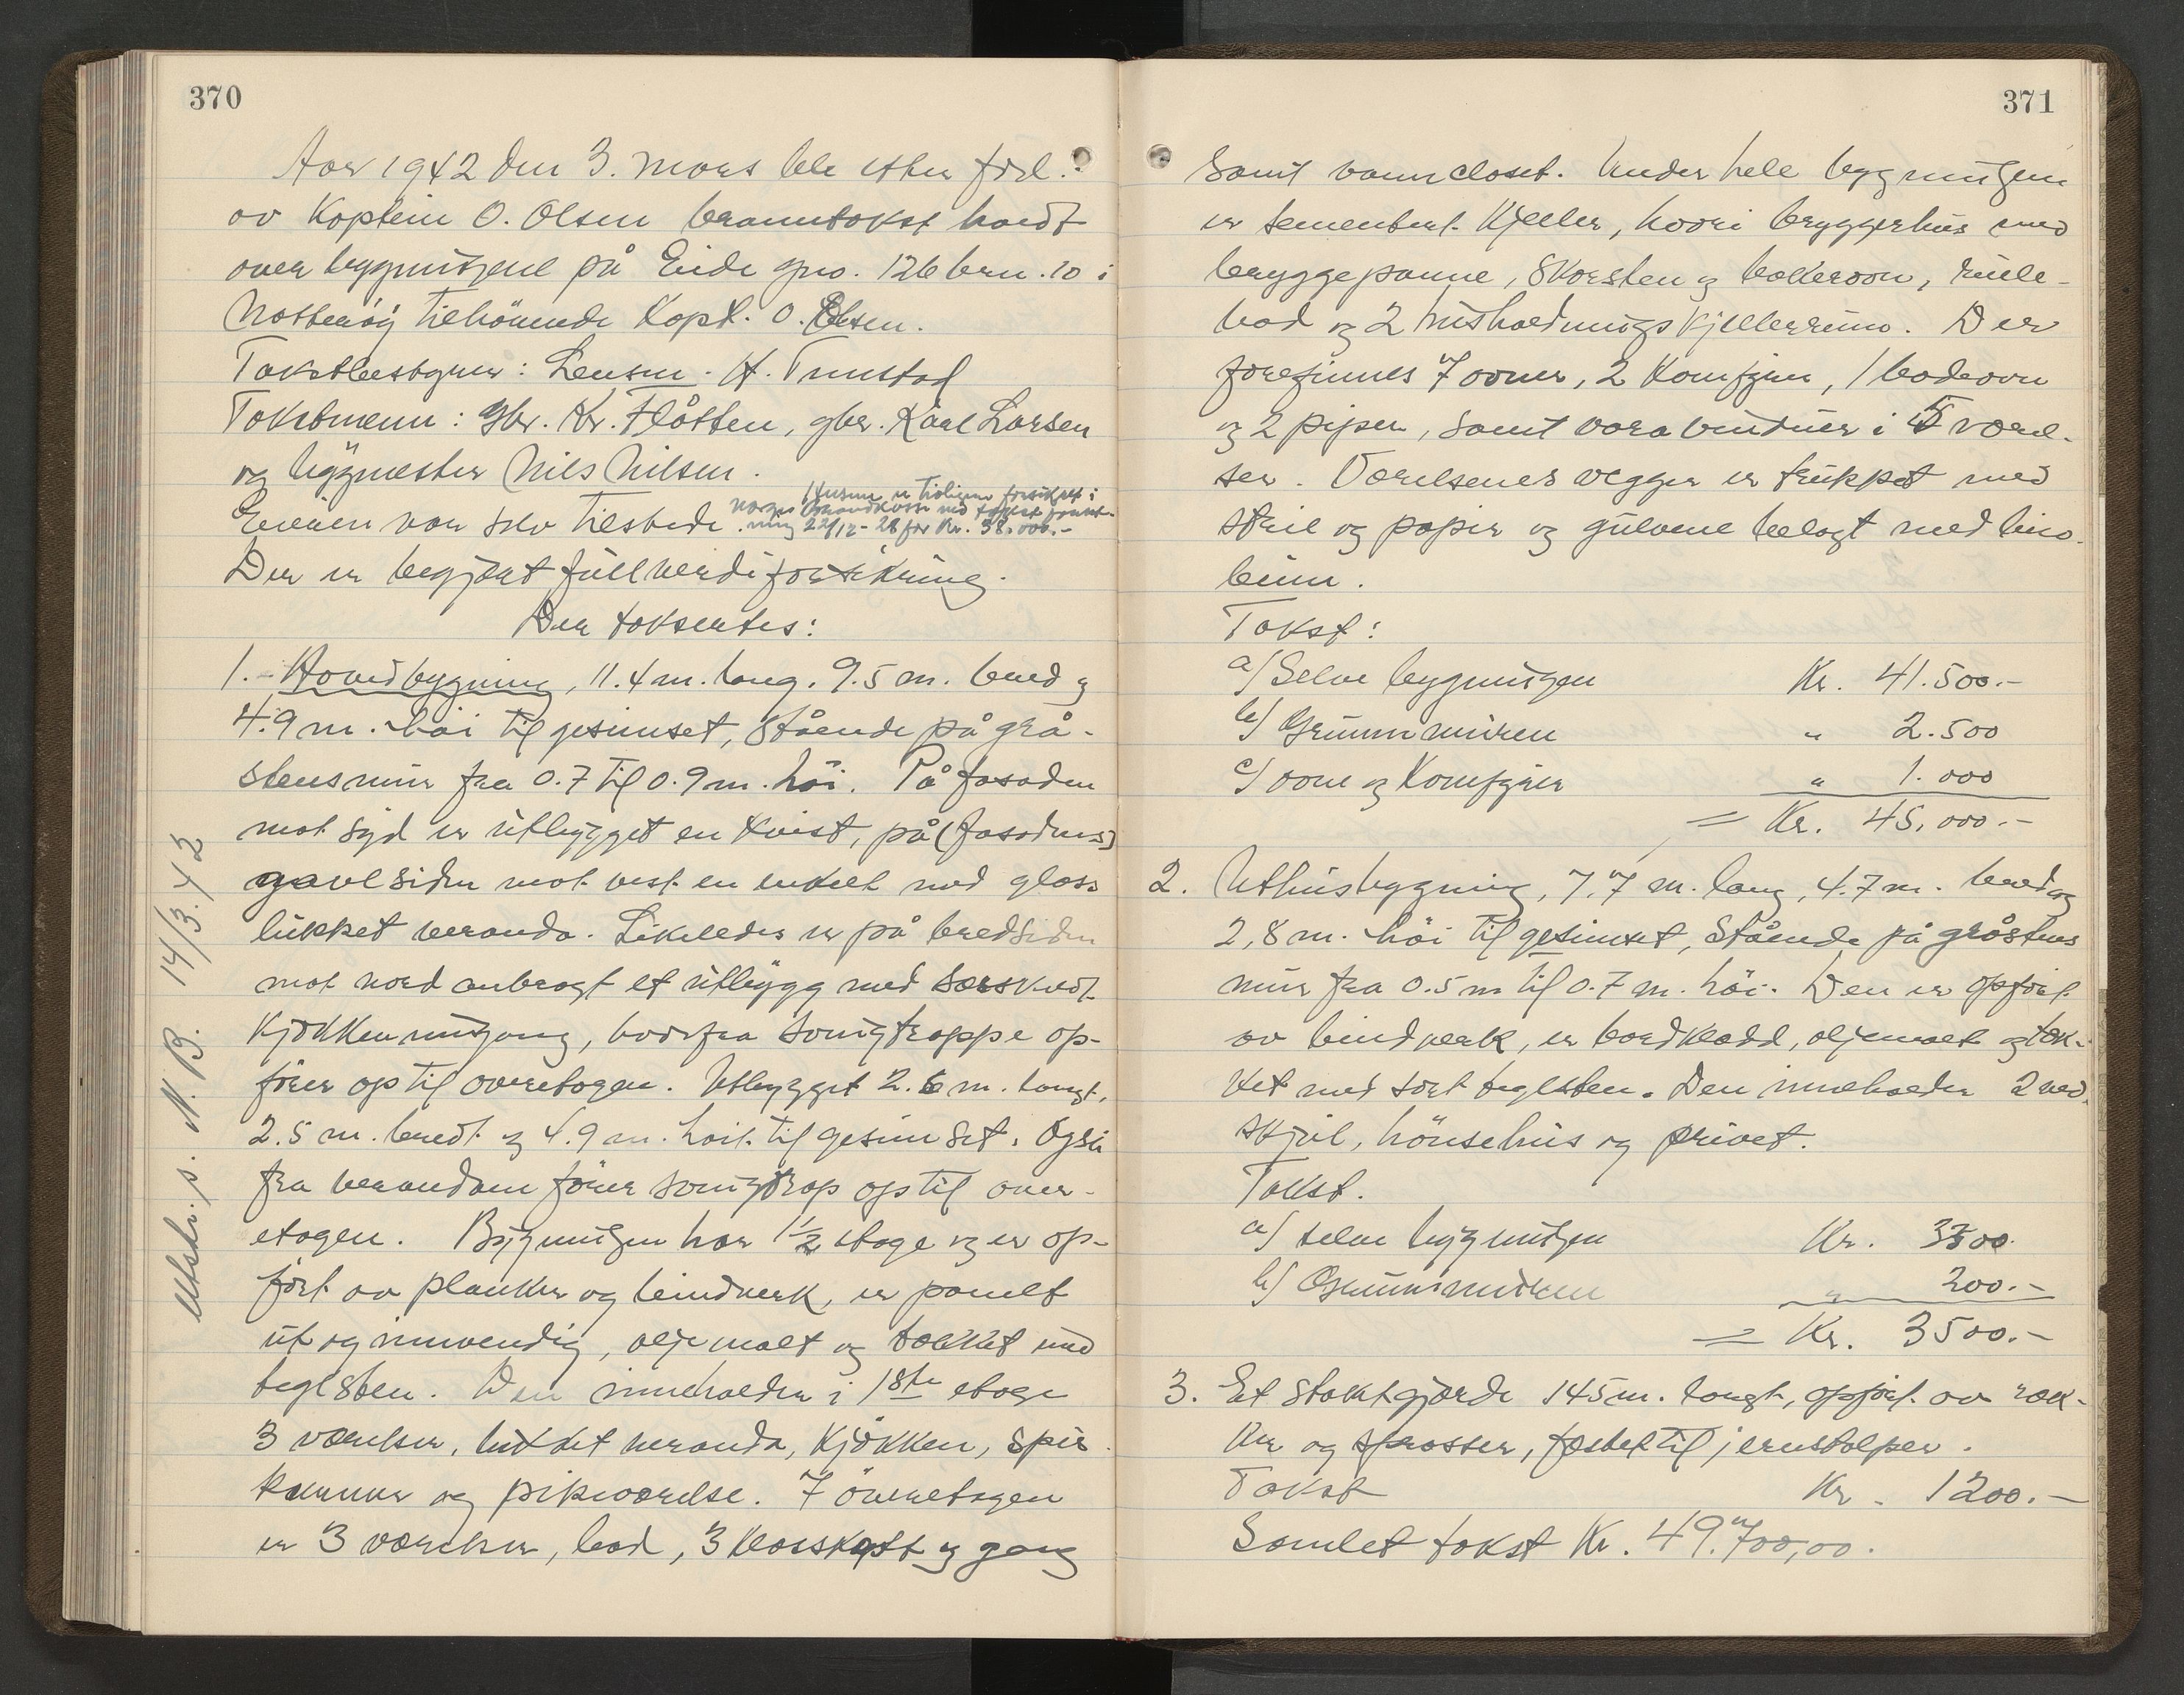 370
Aar 1942 den 3. mars ble etter forl.
av Kaptein O. Olsen branntakst holdt
over bygningene på Eide gno. 126 brn. 10 i
Nøtterøy tilhörende Kapt. O. Olsen.
Takstbestyrer: Lensm. H. Trustad
Takstmenn: gbr. Kr. Flåtten, gbr. Karl Larsen
og byggmester Nils Nilsen.
Husene er tidligere forsikret i
Norges Brandkasse med takst forret-
ning 22/12-28 for Kr. 38.000.-
Eieren var selv tilstede.
Der er begjært fullverdiforsikring.
Der taksertes:
1. - Hovedbygning, 11.4 m. lang. 9.5 m. bred og
4.9 m. höi til gesimset, stående på grå-
stensmur fra 0.7 til 0.9 m. höi. På fasaden
mot syd er utbygget en kvist, på (fasadens)
gavlsiden mot vest en enkelt med glass
lukket veranda. Likeledes er på bredsiden
mot nord anbragt et utbygg med særskilt
kjøkkeninngang, hvorfra svingtrappe op-
förer op til overetagen. Utbygget 2.6 m. langt,
2.5 m. bredt og 4.9 m. höit til gesimset. Også
fra verandaen förer svingtrap op til over-
etagen. Bygningen har 1½ etage og er op-
ført av planker og bindverk, er panelt
ut og innvendig, oljemalt og tækket med
teglsten. Den inneholder i 1ste etage
3 værelser, lukket veranda, kjøkken, spis
kammer og pikeværelse. I överetagen
er 3 værelser, bad, 3 klosskott og gang
Utskr. s. N. B. 14/3. 42
371
samt vanncloset. Under hele bygningen
er sementert kjeller, hvori bryggerhus med
bryggepanne, skorsten og bakerovn, rulle-
bod og 2 husholdningskjellerrum. Der
forefinnes 7 ovner, 2 komfyrer, 1 badeovn
og 2 piper, samt varevinduer i 5 værel-
ser. Værelsenes vegger er trukket med
strie og papir og gulvene belagt med lino-
leum.
Takst:
a/ Selve bygningen Kr. 41.500.-
b/ Grunnmuren " 2.500
c/ ovne og Komfyrer " 1.000
= Kr. 45.000.-
2. Uthusbygning, 7.7 m. lang, 4.7 m. bred og
2,8 m. höi til gesimset, stående på gråstens
mur fra 0.5 m til 0.7 m. höi. Den er opført
av bindverk, er bordkledd, oljemalt og tæk-
ket med sort teglsten. Den inneholder 2 ved-
skjul, hönsehus og privet.
Takst.
a/ selve bygningen Kr. 3300.
b/ Grunnmuren " 200.-
= Kr. 3500.-
3. Et stakitgjærde 145 m. langt, opført av ræk-
ker og sprosser, festet til jernstolper.
Takst Kr. 1200.-
Samlet takst Kr. 49.700,00.